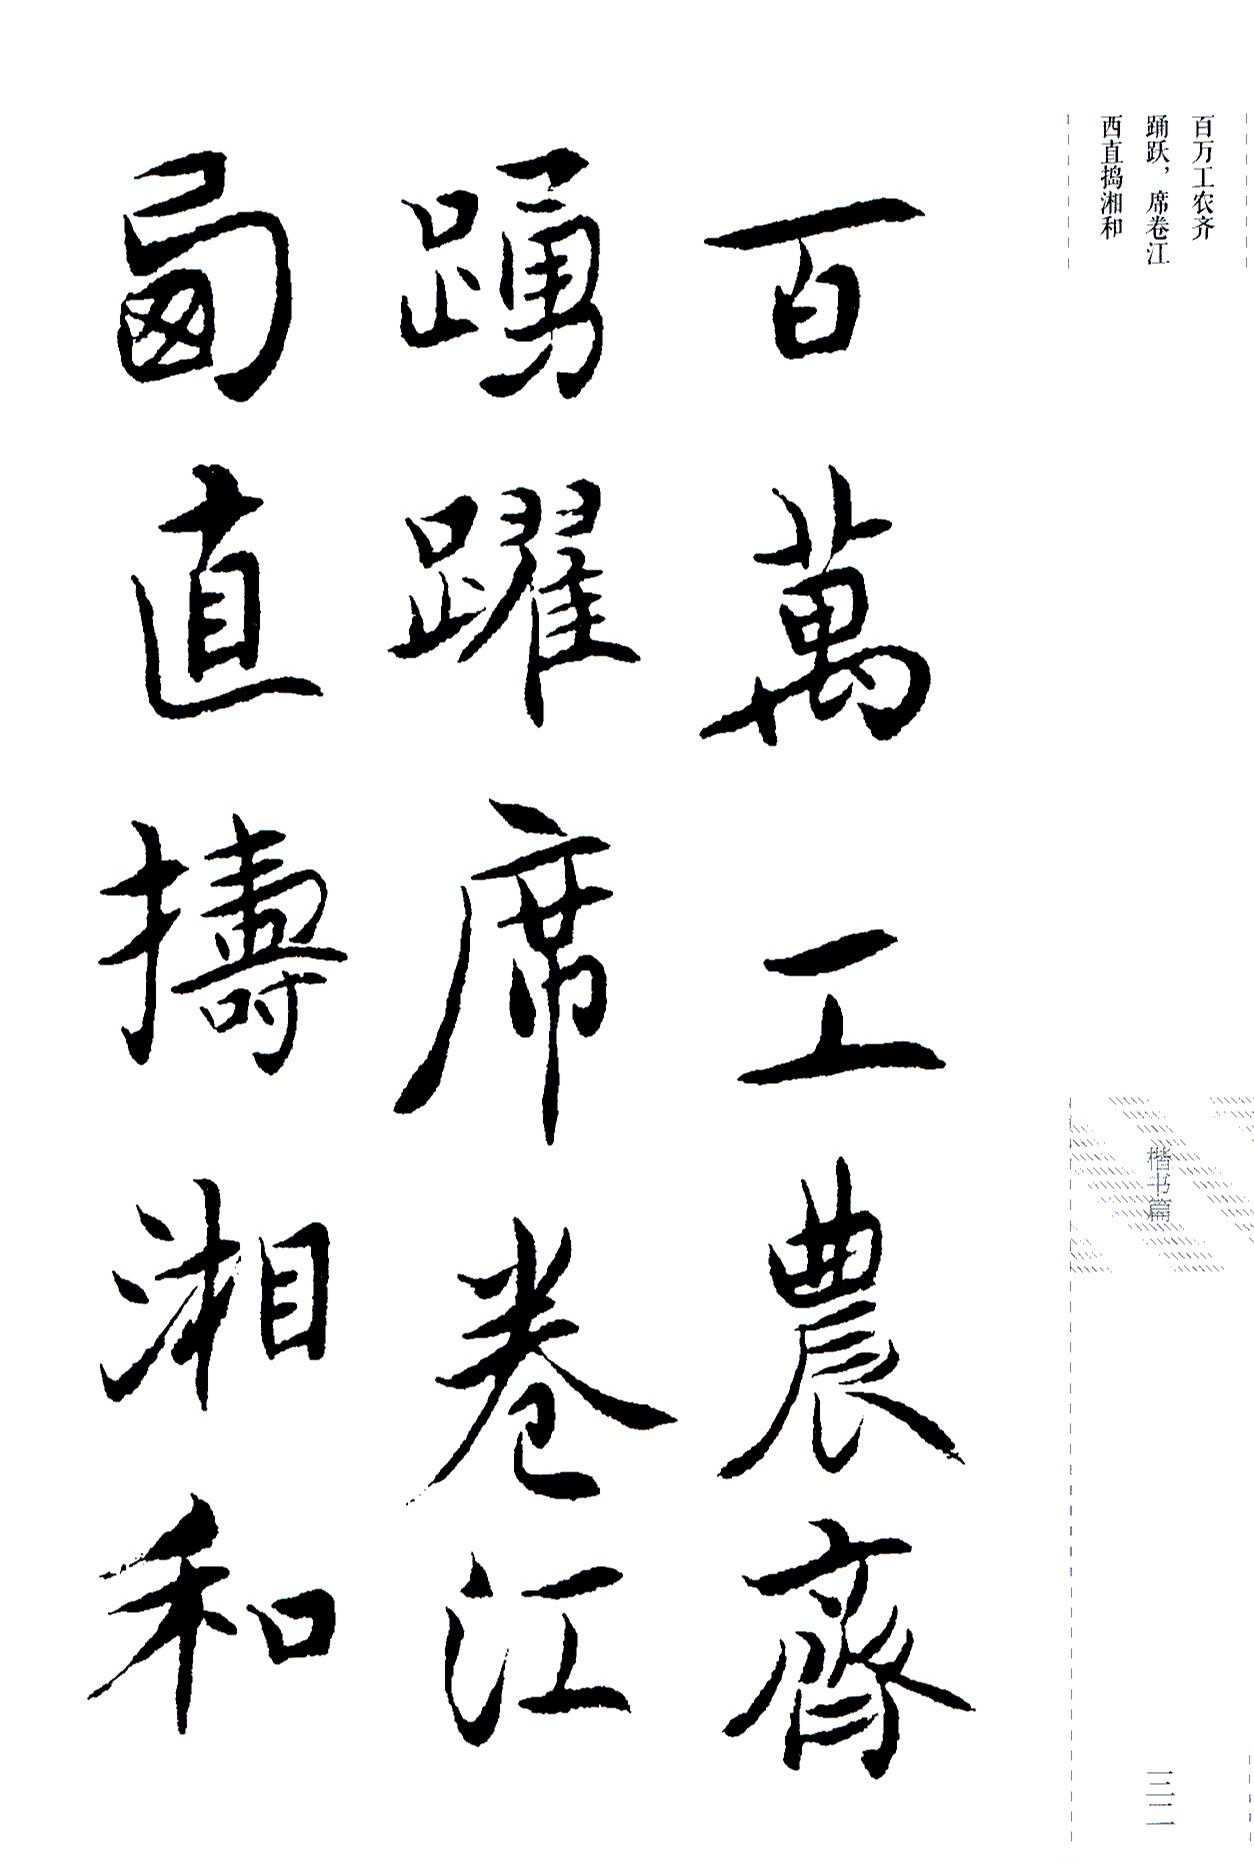 百万工农齐
踊跃，席卷江
西直捣湘和
楷书篇
三二
百萬工農齊
踴躍席卷江
直擣湘和